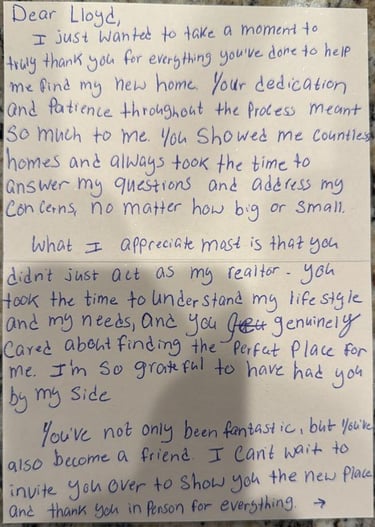 Dear Lloyd,
I just wanted to take a moment to
truly thank you for everything you've done to help
me find my new home. Your dedication
and Patience throughout the Process meant
So much to me. You Showed me Countless
homes and always took the time to
answer my questions and address my
Concerns, no matter how big or Small.
What I appreciate most is that you
didn't just act as my realtor - you
took the time to understand my life style
and my needs, and you genuinely
Cared about finding the Perfect Place for
me. I'm so grateful to have had you
by my Side
You've not only been fantastic, but You've
also become a friend. I Can't wait to
invite you over to Show you the new Place
and thank you in Person for everything. →